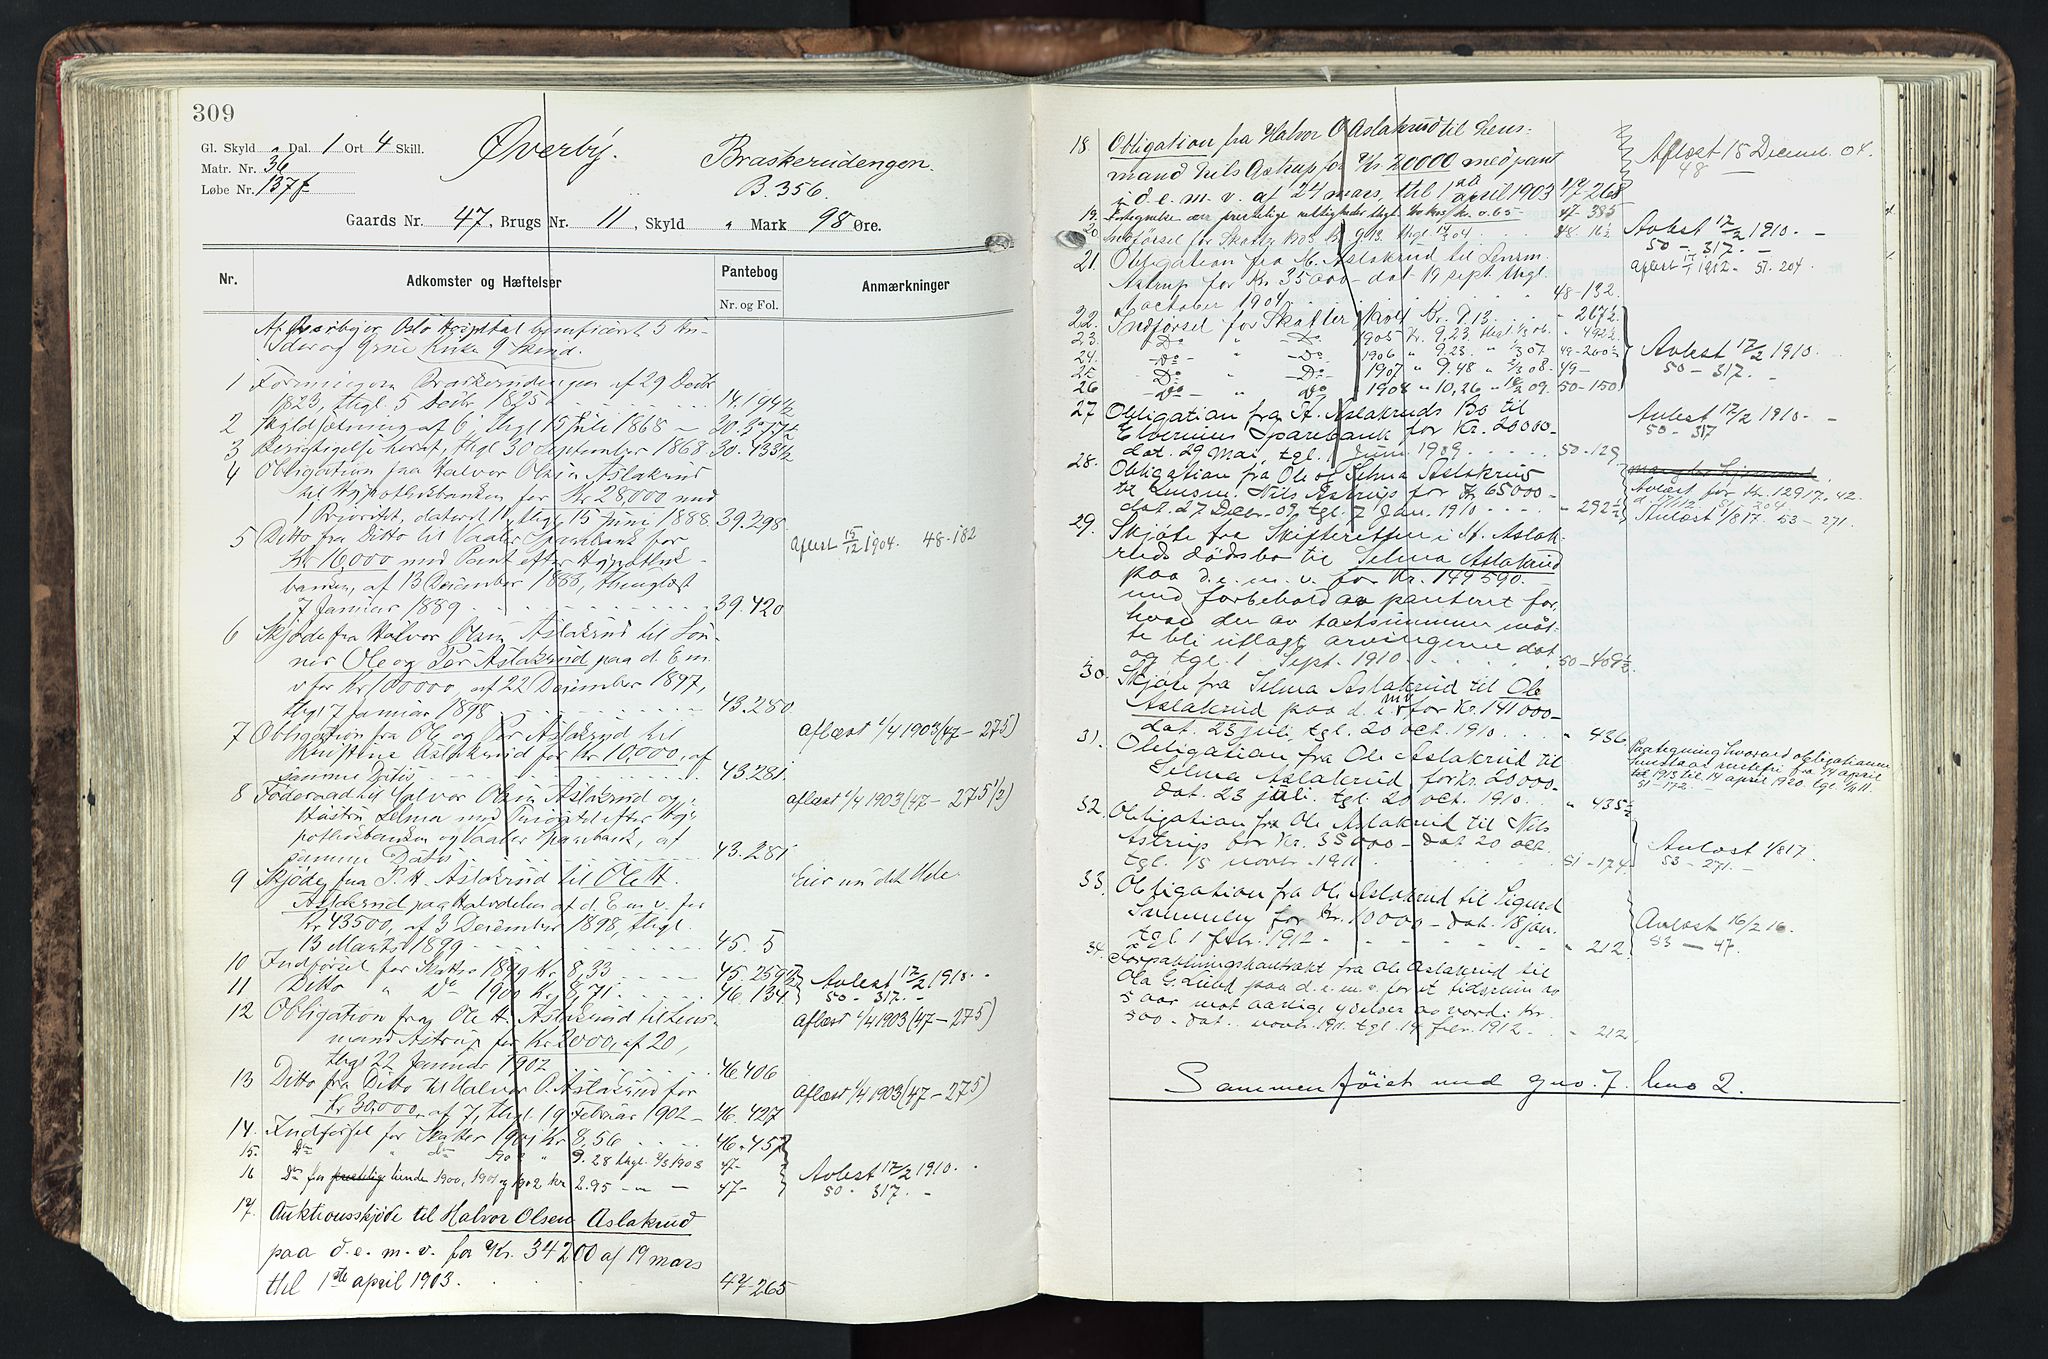 309
Gl. Skyld " Dal. 1 Ort 4 Skill.
Matr. Nr. 36
Løbe Nr. 137f
Øverby.
Braskerudengen.
B. 356.
Gaards Nr. 47, Brugs Nr. 11, Skyld " Mark 98 Øre.
Nr.
Adkomster og Hæftelser
Pantebog
Nr. og Fol.
Anmærkninger
Oslo Hospital beneficeret 5
og Grue Kirke 9 Skind.
1 Braskerudengen af 29 Decbr
1823, thgl. 5 Decbr. 1825 14.194½
2 Skyldsætning af 6, thgl 15 Juli 1868 30.377½
3 Berigtigelse heraf, thgl 30 September 1868. 30.433½
4 Obligation fra Halvor Olsen Aslakrud
til Hypothekbanken for Kr 28,000 med
1 Prioritet, dateret 11, thgl 15 Juni 1888. 39.298
5 Ditto fra Ditto til Vaaler Sparebank for
Kr 16,000 med Pant efter Hypothek-
banken, af 13 December 1888, thinglæst
7 Januar 1889 39.420
Aflæst 15/12 1904. 48-182
6 Skjøde fra Halvor Olsen Aslakrud til Søn-
ner Ole og Per Aslakrud paa d. E m.
v for Kr 100000, af 22 December 1897,
thgl 7 Januar 1898 43.280
7 Obligation fra Ole og Per Aslakrud til
Kristine Aslakrud for Kr 10,000, af
samme Datis 43.281
aflæst 1/4 1903 (47-275)
8 Føderaad til Halvor Olsen Aslakrud og
Hustru Selma med Prioritet efter Hy-
pothekbanken og Vaaler Sparebank, af
samme Datis 43.281
aflæst 1/4 1903 (47-275½)
9 Skjøde fra P. H. Aslakrud til Ole H.
Aslakrud paa Halvdelen af d. E m v. for
Kr 43500, af 3 December 1898, thgl.
13 Marts 1899 45. 5
Eier nu det Hele.
10 Indførsel for Skatter 1899 Kr 8,33 45.259½
11 Ditto " Do 1900 Kr 8,71 46.134
Avlæst 17/2 1910.
50-317.
12 Obligation fra Ole H. Aslakrud til Lens-
mand Astrup for Kr 2000, af 20,
thgl 22 Januar 1902 46.406
aflæst 1/4 1903 (47-275)
13 Ditto fra Ditto til Halvor O. Aslakrud for
Kr 30,000, af 7, thgl. 19 Februar 1902 46.427
aflæst 1/4 1903 (47-275)
14. Indførsel for Skatter 1901 Kr 8,56 46.457
15. Do " Do 1902 " 9.28 thgl. 1903 47-
16 Do for tiende 1900, 1901 og 1902 Kr 2.95 47-
Avlæst 17/2 1910.
50-317.
17. Auktionsskjøde til Halvor Olsen Aslakrud
paa d. e. m. v. for Kr. 34200 af 19 mars
thl 1ste april 1903. 47-265
18. Obligation fra Halvor O Aslakrud til Lens-
mand Nils Astrup for Kr 20000 med pant
i d. e. m. v. af 24 mars, thl 1ste april 1903 47-268
Aflæst 15 Decemb. 04.
48
19. over rettigheder thgl. 47-385
20. Indførsel for Skatter 1903 Kr 9.13. thgl. 48-16½
Avlæst 17/2 1910.
50-317.
21. Obligation fra H. Aslakrud til Lensm.
Astrup for Kr. 35000 dat 19 sept. thgl.
1 october 1904. 48-132
aflæst 1912. 51-204.
22. Indførsel for Skatter 1904 Kr. 9.13. " 267½
23. Do " Do 1905 Kr. 9,23. thgl. " 492½
24. Do " Do 1906 " 9.23. " 49-260½
25 Do " Do 1907 " 9.48 " 08. 49-
26 Do " Do 1908 " 10,26 " 09. 50-150
Avlæst 17/2 1910.
50-317.
27 Obligation fra H. Aslakruds Bo til
Elverums Sparebank for Kr. 20000-
dat. 29 Mai, tgl. 1 Juni 1909 50-129
Avlæst 17/2 1910.
50-317
28. Obligation fra Ole og Selma Aslakrud
til Lensm. Nils Astrup for Kr 65000-
dat. 27 Decbr. 09, tgl. 7 Jan. 1910 " 292½
Avlæst for Kr. 12917.42.
d. 17/1 12. 51-204
Avlæst 1/8 17. 53-271.
29. Skjøte fra Skifteretten i H. Aslak-
ruds dødsbo til Selma Aslakrud
paa d. e. m. v. for Kr. 149590.-
med forbehold av panteret for,
hvad der av taxtsummen maat-
te bli utlagt arvingerne dat.
og tgl. 1. Sept. 1910. 50-409½
30. Skjøte fra Selma Aslakrud til Ole
Aslakrud paa d. e. m v for Kr. 141000-
dat. 23 juli, tgl. 20 oct. 1910. " 436
31. Obligation fra Ole Aslakrud til
Selma Aslakrud for Kr. 20000-
dat. 23 juli. tgl. 20 oct. 1910. " 435½
Paategning hvorved obligationen
rentefri fra 14 april
1913 til 14 april 1920. tgl. 11.
51-172.
32. Obligation fra Ole Aslakrud til Nils
Astrup for Kr. 35000- dat 20 oct.
tgl. 15 novbr. 1911 51-174
Avlæst 1/8 17.
53-271.
33. Obligation fra Ole Aslakrud til Sigurd
for Kr. 10000- dat. 18 jan.
tgl 1 febr. 1912. " 212
Avlæst 16/2 16.
53-47.
34. Forpaktningskontrakt fra Ole Aslakrud til
Ola G. Lund paa d. e. m. v. for et tidsrum av
5 aar mot aarlige ydelser av værdi: Kr.
500.- dat. novbr. 1911 tgl. 14 febr. 1912. " 212
Sammenføiet med gno. 7. bno 2.